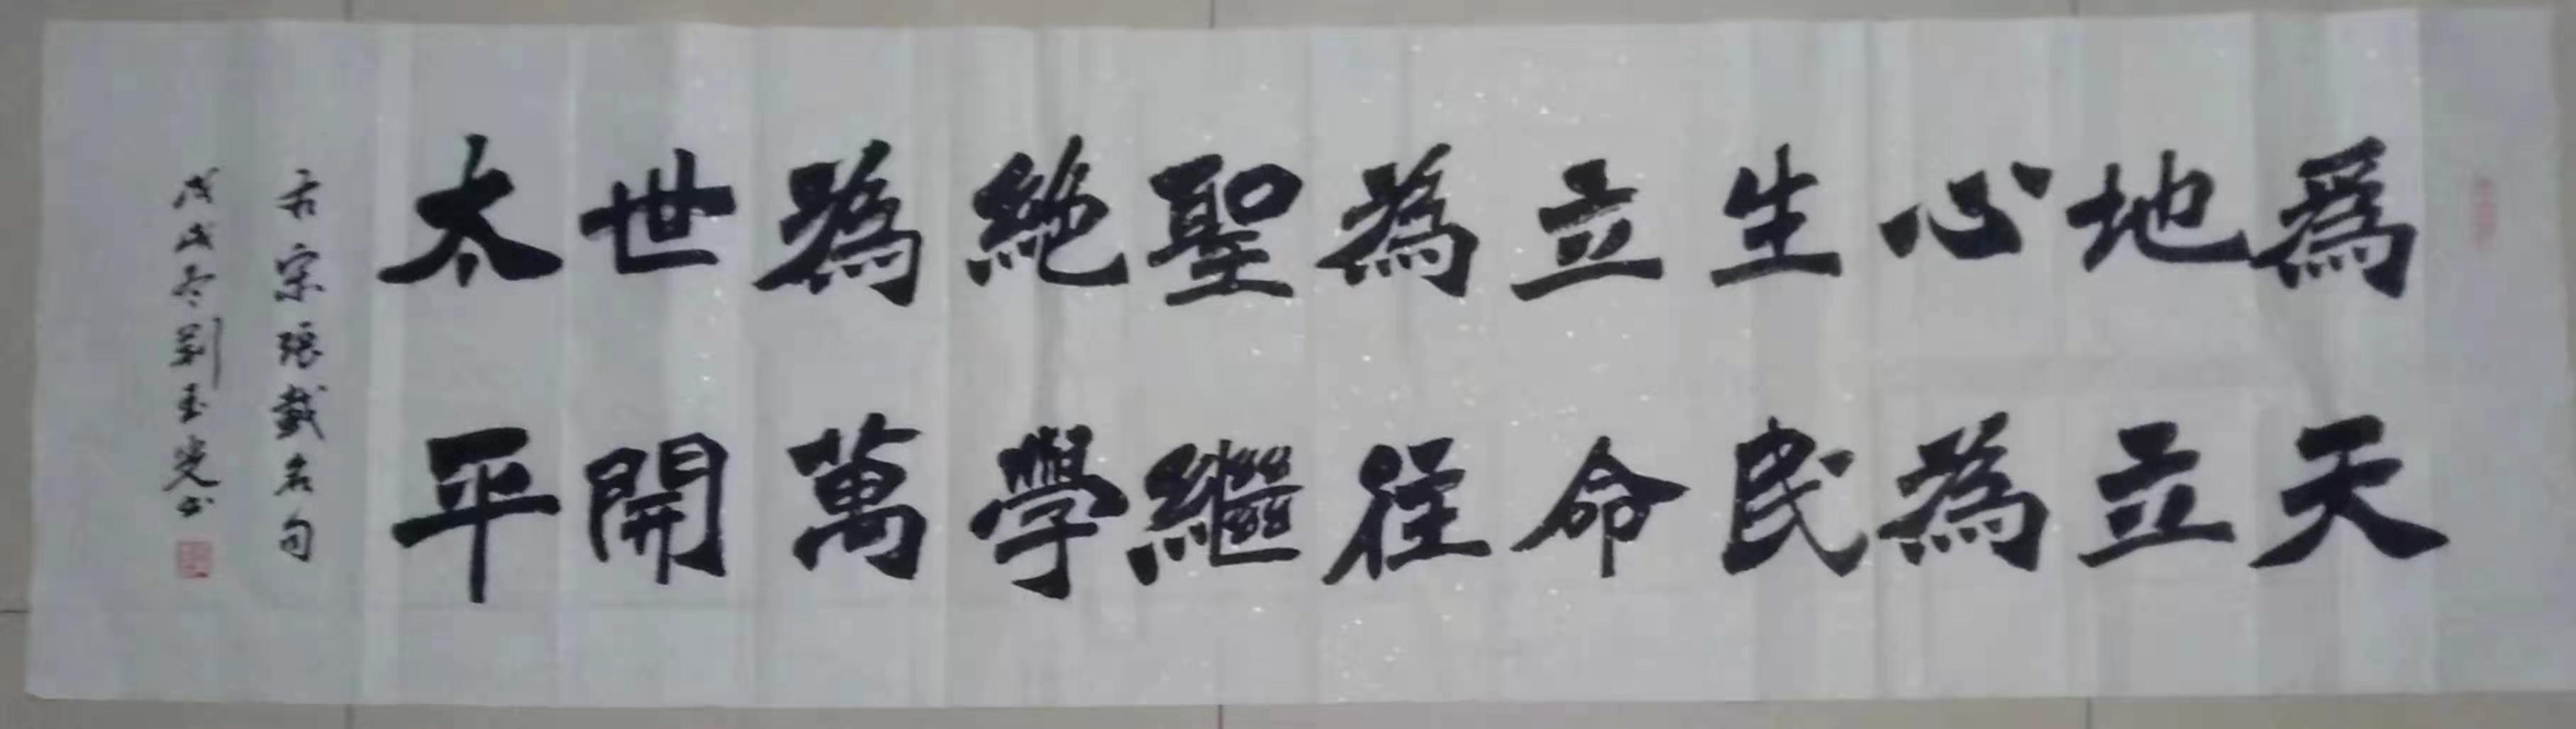 爲天
地立
心為
生民
立命
為往
聖繼
絶學
為萬
世開
太平
宋張載名句
戊戌冬劉玉书